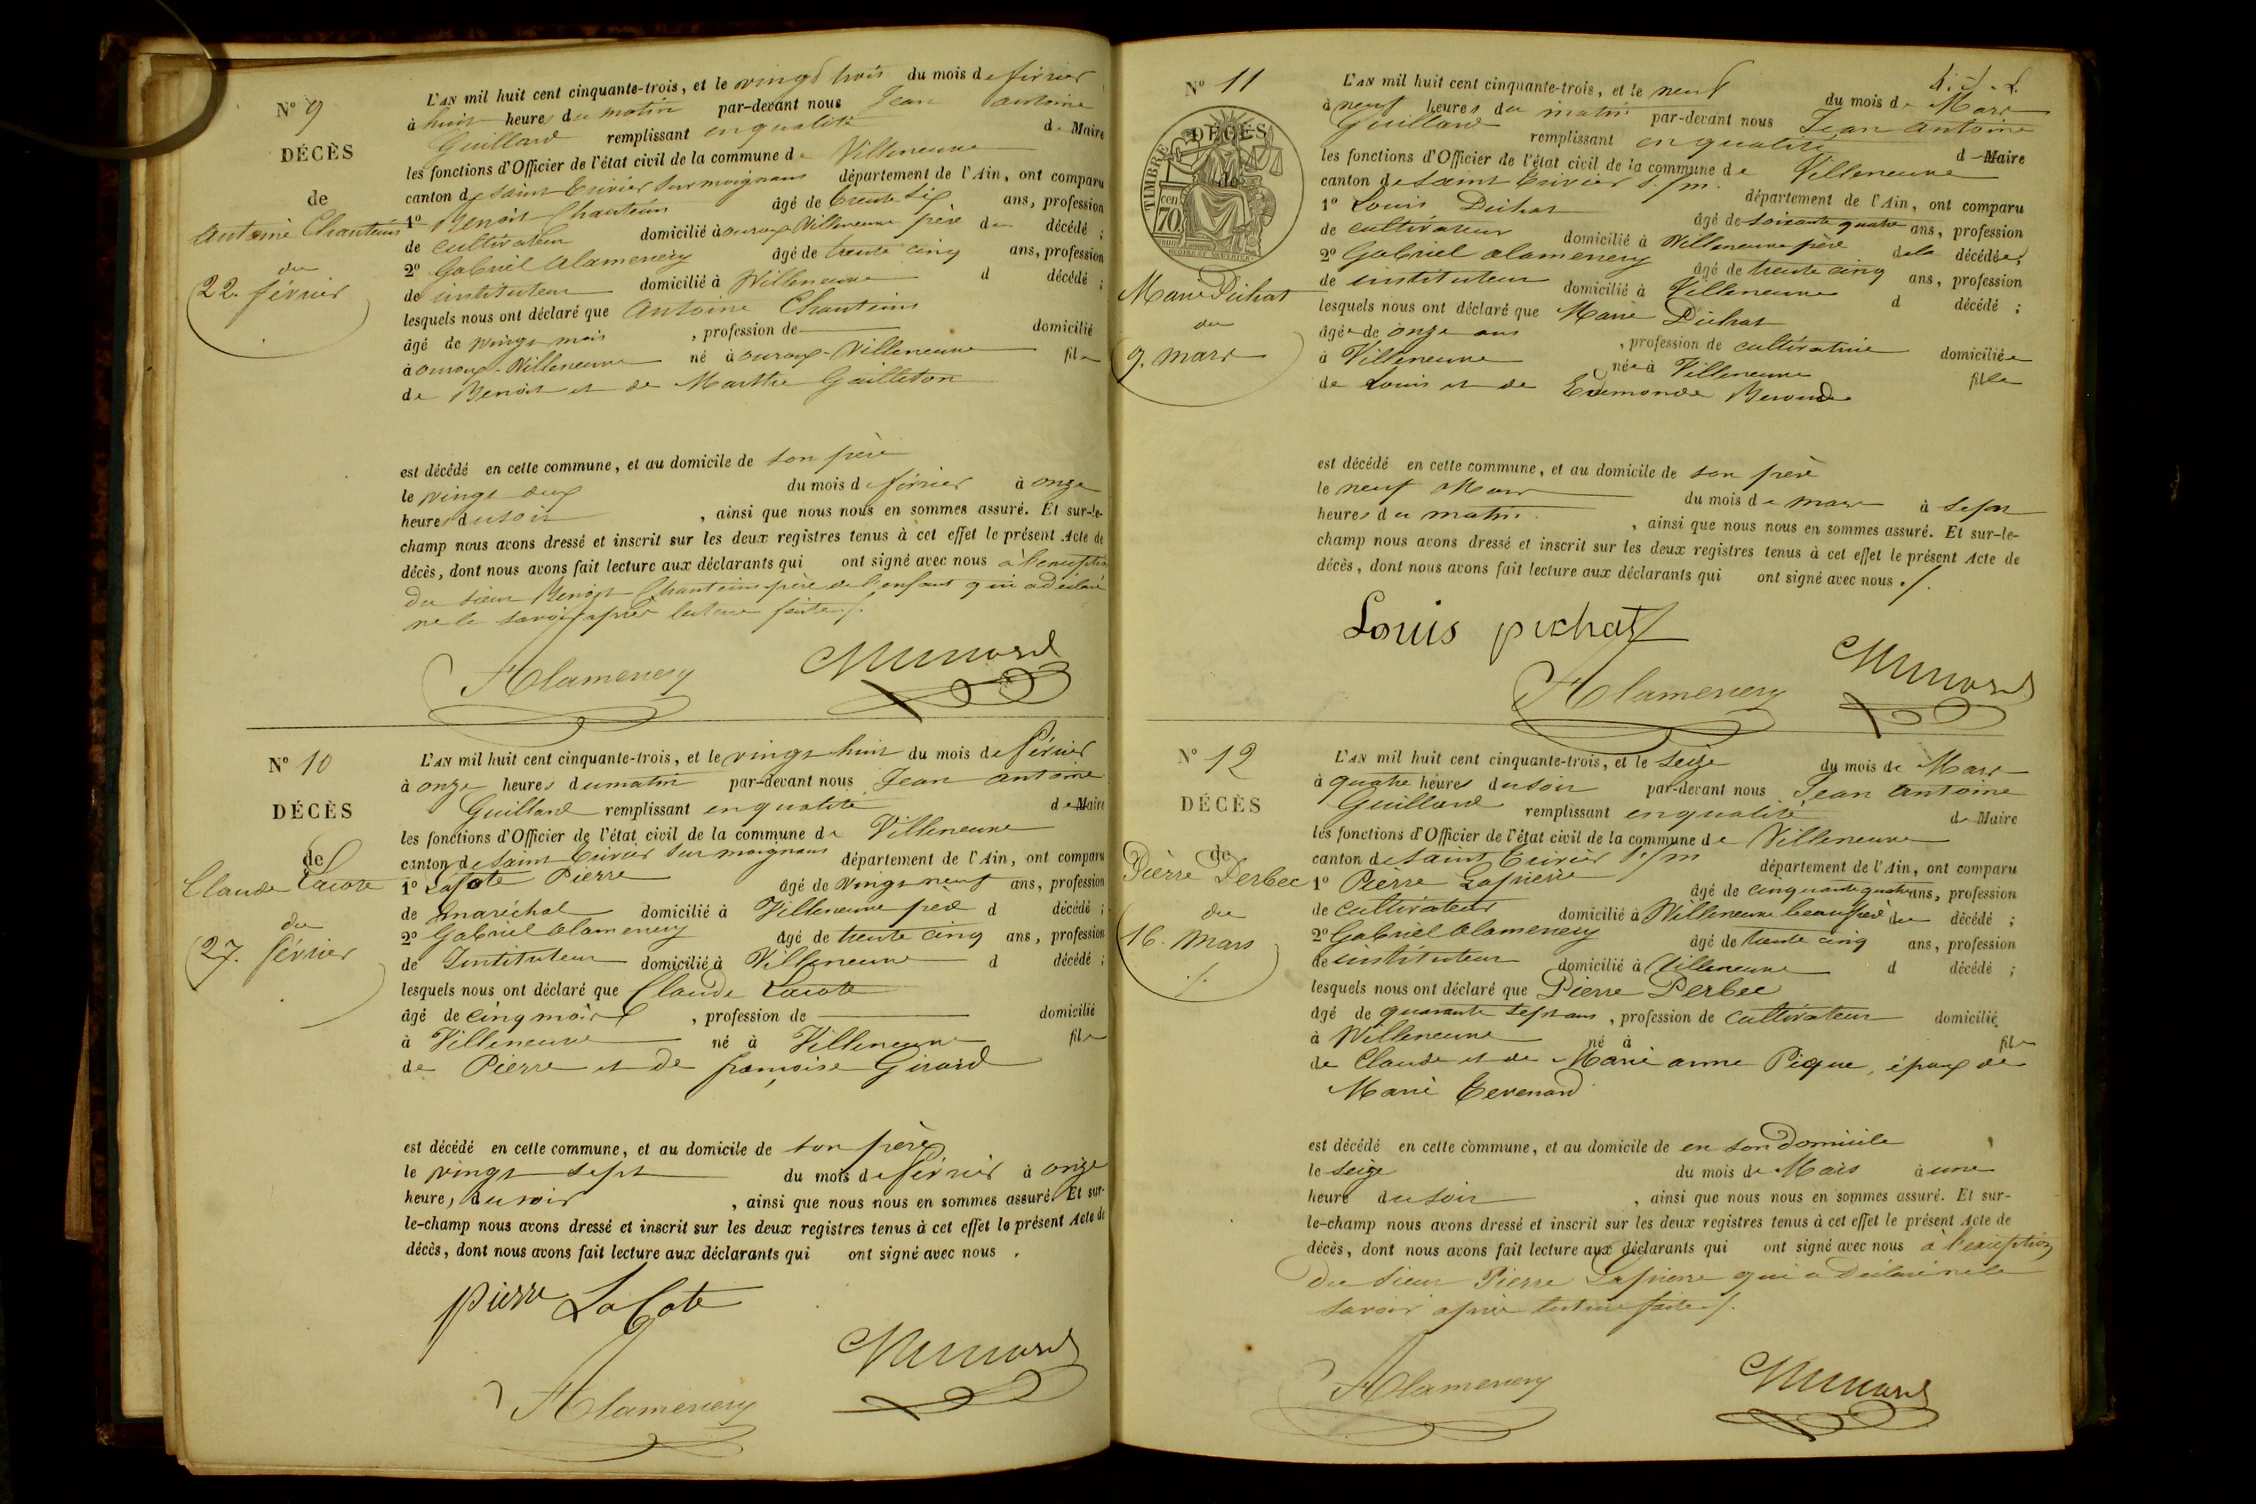 N° 9
DÉCÈS
de
Antoine Chanteins
du
22. février
L'AN mil huit cent cinquante-trois, et le vingt trois du mois de février
à huit heures du matin par-devant nous Jean antoine
Guillard remplissant en qualité de Maire
les fonctions d'Officier de l'état civil de la commune de Villeneuve
canton de Saint Trivier sur moignans département de l'Ain, ont comparu
1° Benoit Chanteins âgé de trente six ans, profession
de cultivateur domicilié à ouroux-Villeneuve père du décédé ;
2° Gabriel alamenery âgé de trente cinq ans, profession
de instituteur domicilié à Villeneuve d décédé ;
lesquels nous ont déclaré que Antoine Chanteins
âgé de vingt mois , profession de domicilié
à ouroux-Villeneuve né à ouroux-Villeneuve fils
de Benoit et de Marthe Gailleton
est décédé en cette commune, et au domicile de son père
le vingt deux du mois de février à onze
heures du soir , ainsi que nous nous en sommes assuré. Et sur-le-
champ nous avons dressé et inscrit sur les deux registres tenus à cet effet le présent Acte de
décès, dont nous avons fait lecture aux déclarants qui ont signé avec nous à l'exception
du sieur Benoit Chanteins père de l'enfant qui a déclaré
ne le savoir après lecture faite ./.
Alamenery
N° 10
DÉCÈS
de
Claude Lacote
du
27. février
L'AN mil huit cent cinquante-trois, et le vingt huit du mois de février
à onze heures du matin par-devant nous Jean antoine
Guillard remplissant en qualité de Maire
les fonctions d'Officier de l'état civil de la commune de Villeneuve
canton de Saint Trivier sur moignans département de l'Ain, ont comparu
1° Lacote Pierre âgé de vingt neuf ans, profession
de maréchal domicilié à Villeneuve père d décédé ;
2° Gabriel alamenery âgé de trente cinq ans, profession
de Instituteur domicilié à Villeneuve d décédé ;
lesquels nous ont déclaré que Claude Lacote
âgé de cinq mois , profession de domicilié
à Villeneuve né à Villeneuve fils
de Pierre et de françoise Girard
est décédé en cette commune, et au domicile de son père
le vingt sept du mois de février à onze
heures du soir , ainsi que nous nous en sommes assuré. Et sur-
le-champ nous avons dressé et inscrit sur les deux registres tenus à cet effet le présent Acte de
décès, dont nous avons fait lecture aux déclarants qui ont signé avec nous .
pierre LaCote
Alamenery
N° 11
TIMBRE
DÉCÈS
de
cen 70
Marie Pichat
du
9. mars
L'AN mil huit cent cinquante-trois, et le neuf du mois de Mars
à neuf heures du matin par-devant nous Jean Antoine
Guillard remplissant en qualité de Maire
les fonctions d'Officier de l'état civil de la commune de Villeneuve
canton de Saint Trivier s./m. département de l'Ain, ont comparu
1° Louis Pichat âgé de soixante quatre ans, profession
de cultivateur domicilié à Villeneuve père de la décédée ;
2° Gabriel alamenery âgé de trente cinq ans, profession
de instituteur domicilié à Villeneuve d décédé ;
lesquels nous ont déclaré que Marie Pichat
âgée de onze ans , profession de cultivatrice domiciliée
à Villeneuve née à Villeneuve fille
de Louis et de Edemonde
est décédé en cette commune, et au domicile de son père
le neuf Mars du mois de mars à sept
heures du matin. , ainsi que nous nous en sommes assuré. Et sur-le-
champ nous avons dressé et inscrit sur les deux registres tenus à cet effet le présent Acte de
décès, dont nous avons fait lecture aux déclarants qui ont signé avec nous ./.
Louis pichat
Alamenery
N° 12
DÉCÈS
de
Pierre Perbec
du
16. Mars
./.
L'AN mil huit cent cinquante-trois, et le seize du mois de Mars
à quatre heures du soir par-devant nous Jean Antoine
Guillard remplissant en qualité de Maire
les fonctions d'Officier de l'état civil de la commune de Villeneuve
canton de Saint Trivier s./m département de l'Ain, ont comparu
1° Pierre Lapierre âgé de cinquante quatre ans, profession
de cultivateur domicilié à Villeneuve beau père du décédé ;
2° Gabriel Alamenery âgé de trente cinq ans, profession
de instituteur domicilié à Villeneuve d décédé ;
lesquels nous ont déclaré que Pierre Perbec
âgé de quarante sept ans , profession de cultivateur domicilié
à Villeneuve né à fils
de Claude et de Marie anne Pique, époux de
Marie Tevenard
est décédé en cette commune, et au domicile de en son Domicile
le seize du mois de Mars à une
heure du soir , ainsi que nous nous en sommes assuré. Et sur-
le-champ nous avons dressé et inscrit sur les deux registres tenus à cet effet le présent Acte de
décès, dont nous avons fait lecture aux déclarants qui ont signé avec nous à l'exception
du sieur Pierre Lapierre qui a déclaré ne le
savoir après lecture faite ./.
Alamenery